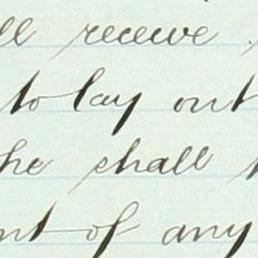 ll receive
to lay out
he shall
nt of any